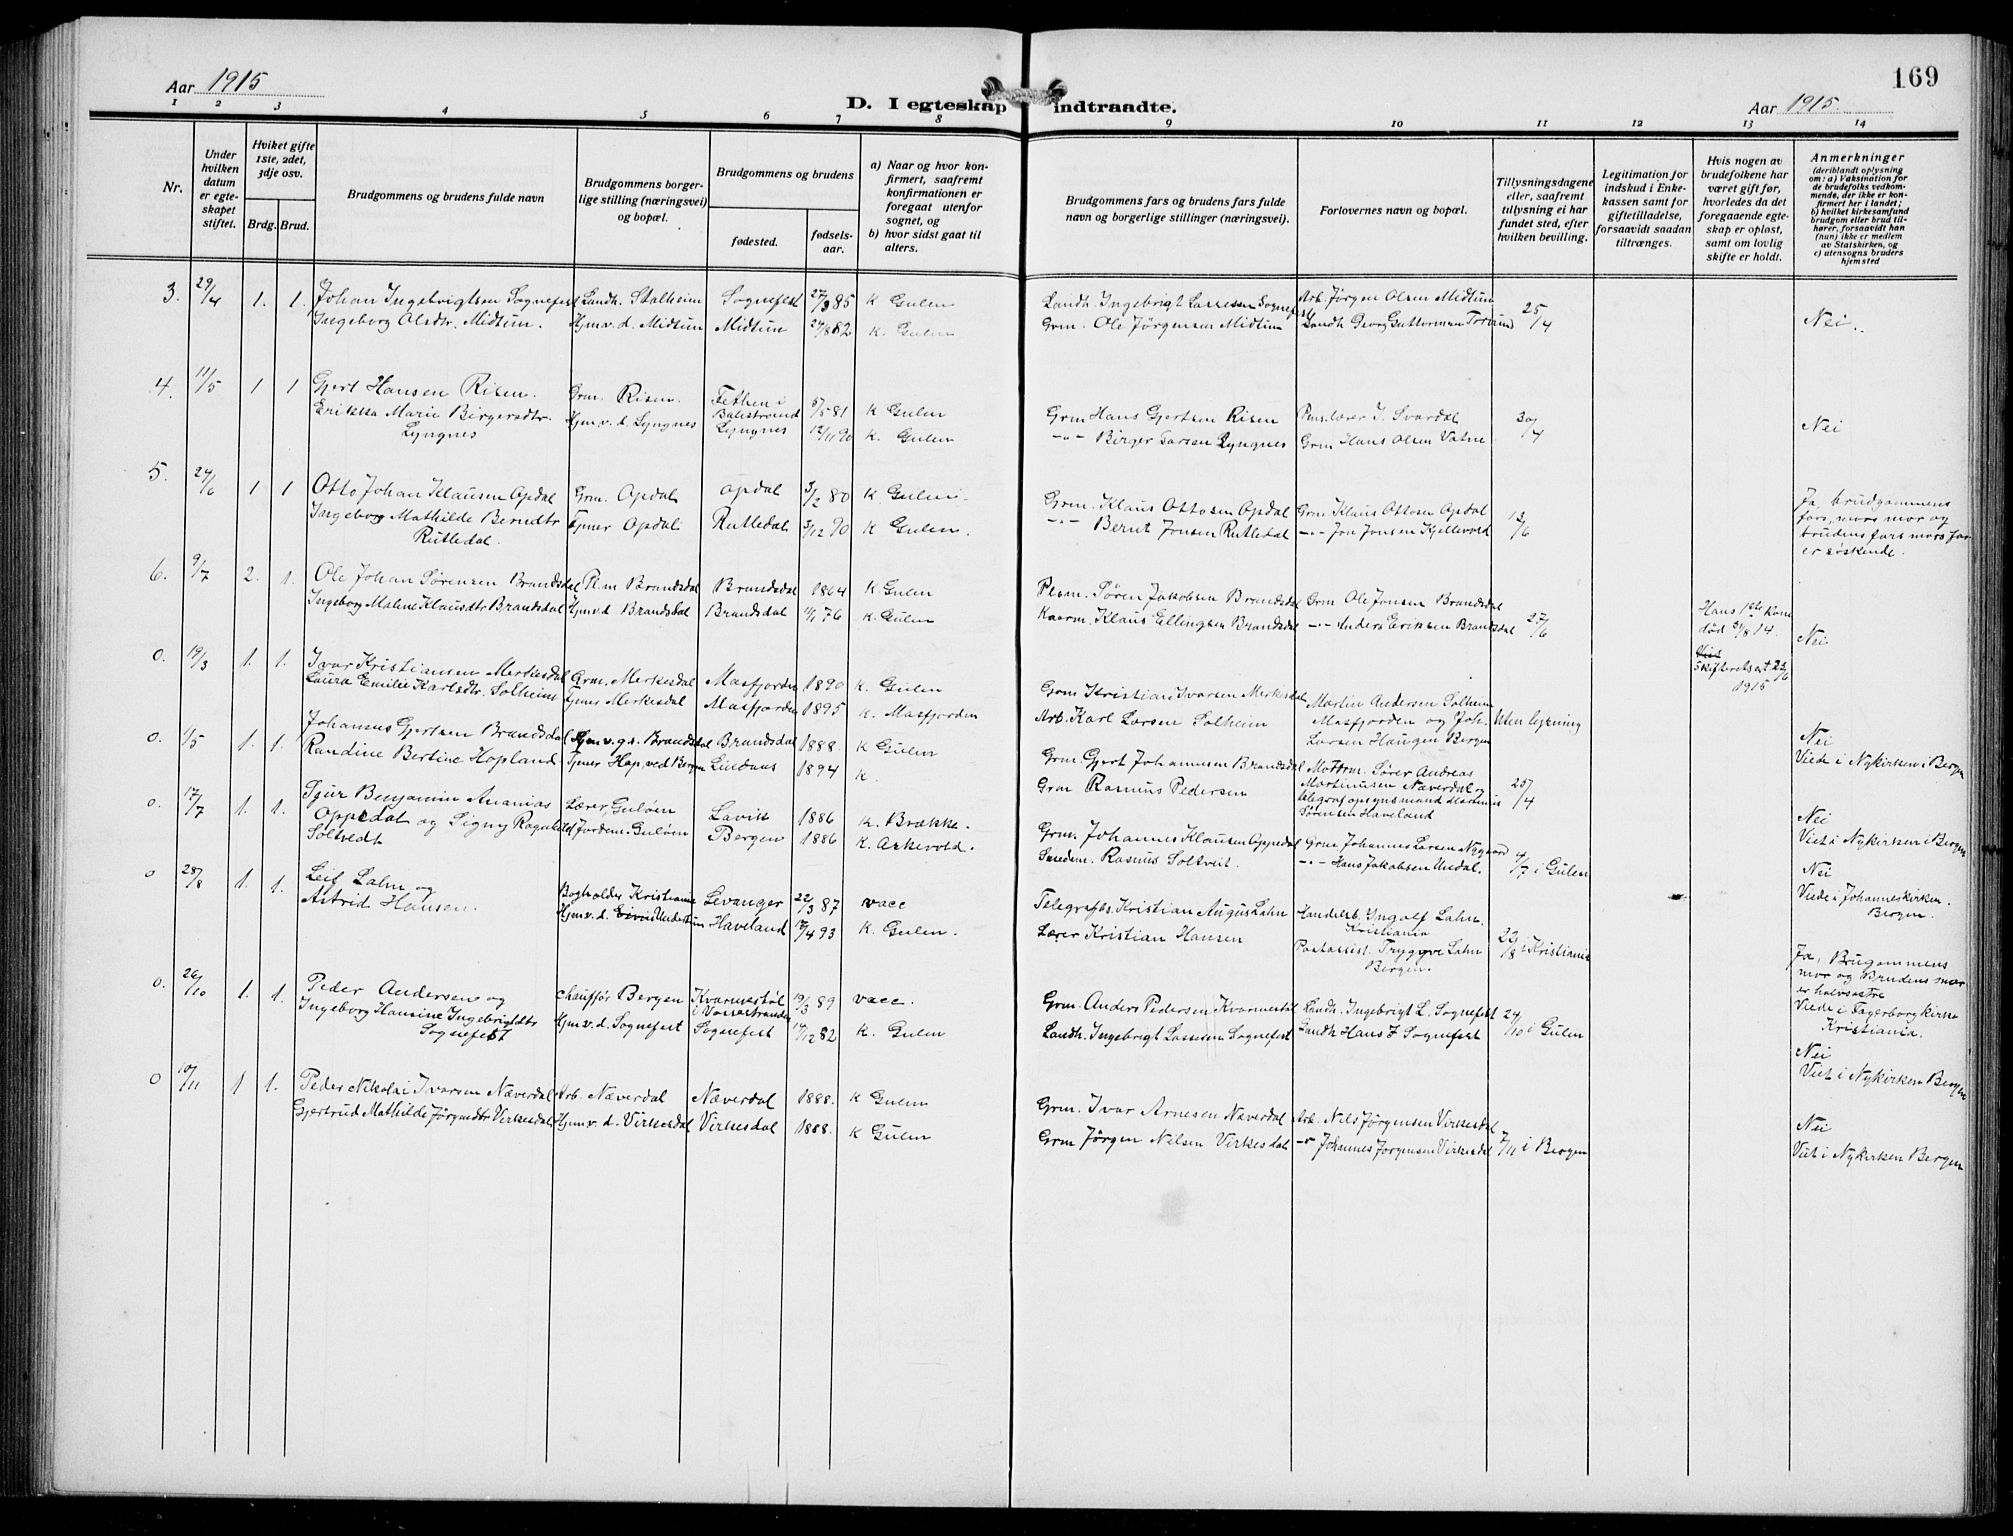 Aar 1915
D. I egteskap indtraadte.
Aar 1915.
169
1 2 3 4 5 6 7 8 9 10 11 12 13 14
Nr.
Under hvilken datum er egteskapet stiftet.
Hviket gifte 1ste, 2det, 3dje osv.
Brdg. Brud.
Brudgommens og brudens fulde navn
Brudgommens borgerlige stilling (næringsvei) og bopæl.
Brudgommens og brudens
fødested.
fødselsaar.
a) Naar og hvor konfirmert, saafremt konfirmationen er foregaat utenfor sognet, og
b) hvor sidst gaat til alters.
Brudgommens fars og brudens fars fulde navn og borgerlige stillinger (næringsvei).
Forlovernes navn og bopæl.
Tillysningsdagene eller, saafremt tillysning ei har fundet sted, efter hvilken bevilling.
Legitimation for indskud i Enkekassen samt for giftetilladelse, forsaavidt saadan tiltrænges.
Hvis nogen av brudefolkene har været gift før, hvorledes da det foregaaende egteskap er opløst, samt om lovlig skifte er holdt.
Anmerkninger (deriblandt oplysning om: a) Vaksination for de brudefolks vedkommende, der ikke er konfirmert her i landet; b) hvilket kirkesamfund brudgom eller brud tilhører, forsaavidt han (hun) ikke er medlem av Statskirken, og c) utensogns bruders hjemsted
3. 29/4 1. 1. Johan Ingebrigtsen Sognefest Landh. Stalheim Sognefest 27/3 85 K Gulen Landh. Ingebrigt Lassesen Sognefest Arb. Jørgen Olsen Midtun 25/4
Ingeborg Olsdtr. Midtun. Hjm v. d. Midtun Midtun K. Gulen Grm. Ole Jørgensen Midtun Landh Georg Guttormsen Nei.
4. 11/5 1 1 Gjert Hansen Risen. Grm. Risen. Fethen i Balestrand 81 K Gulen Grm Hans Gjertsen Risen Pens. lærer J. Svardal 30/4
Erikka Marie Birgersdtr. Lyngnes Hjm v. d. Lyngnes Lyngnes 12/11 90 K. Gulen -"- Birger Larsen Lyngnes Grm Hans Olsen Vatne Nei
5. 24/6 1 1 Otto Johan Klausen Opdal Grm. Opdal Opdal 3/2 80 K Gulen. Grm. Klaus Ottosen Opdal Grm Klaus Ottosen Opdal 13/6
Ingeborg Mathilde Berndtr Rutledal. Tjener Opdal Rutledal 3/12 90 K Gulen. -"- Bernt Jonsen Rutledal -"- Jon Jonsen Kjellevold
Ja, brudgommens fars, mors mor og brudens fars mors far er søskende.
6. 9/7 2. 1. Ole Johan Sørensen Brandsdal Plm Brandsdal Brandsdal 1864 K. Gulen Plsm. Søren Jakobsen Brandsdal Grm Ole Jonsen Brandsdal
Ingeborg Maline Klausdtr Brandsdal Hjm v. d Brandsdal Brandsdal 11/1 76 K. Gulen Kaarm. Klaus Ellingsen Brandsdal -"- Anders Eriksen Brandsdal 27/6
Hans 1ste kone død 31/8 14. Skifteretsat. 23/6 1915
Nei
0. 19/3 1. 1. Ivar Kristiansen Merkesdal Grm. Merkesdal Masfjorden 1890 K. Gulen Grm Kristian Ivarsen Merkesdal Martin Andersen Solheim
Laura Emilie Karlsdtr. Solheim Tjener Merkesdal Masfjorden 1895 K. Masfjorden Arb. Karl Larsen Solheim Masfjorden og Joh. Larsen Haugen Bergen Uten lysning
Nei
Viede i Nykirken i Bergen
0. 1/5 1. 1. Johannes Gjertsen Brandsdal Hjm v. g. s. Brandsdal Brandsdal 1888. K Gulen Grm. Gjert Johannesen Brandsdal Mottrm. Sører Andreas Martinusen Næverdal og
Randine Bertine Hopland Tjener Hop ved Bergen Lindaas 1894 K. Grm Rasmus Pedersen telegrafopsynsmand Martinus Sørensen Haveland 25/4
Nei
Viet i Nykirken i Bergen
0. 17/7 1. 1. Sjur Benjamin Ananias Oppedal og Signy Ragnhild Soltvedt Lærer, Guløen Lavik 1886 K. Brække. Grm. Johannes Klausen Oppedal Grm Johannes Larsen Nygaard
Jordem. Guløen Bergen 1886 K. Askevold. Rasmus Soltveit. -"- Hans Jakobsen Undal. 4/7 i Gulen
Nei
Viede i Johanneskirken. Bergen.
0 28/8 1. 1. Leif Lahn og Bogholder Kristiania Levanger 22/3 87 vacc Telegrafb. Kristian August Lahn Handelsb. Ingolf Lahn. Kristiania
Astrid Hansen. Hjm v. d. Haveland 17/4 93 K. Gulen. Lærer Kristian Hansen Postassist. Trygve Lahn Bergen. 22/8 i Kristiania
Ja, Brugommens mor og Brudens mor er halvsøstre
Viede i Fagerborg kirke Kristiania.
0. 26/10 1. 1. Peder Andersen og chauffør Bergen Kvarmestøl i Vossestranden 19/3 89 vacc. Grm. Anders Pedersen Kvarmestøl Landh. Ingebrigt L. Sognefest 24/10 i Gulen
Ingeborg Hansine Ingebrigtdtr Sognefest Hjm v. d. Sognefest Sognefest 14/12 82 K. Gulen Landh. Ingebrigt Lassesen Sognefest Landh Hans I Sognefest
Nei
Viet i Nykirken Bergen
0 10/11 1 1. Peder Nikolai Ivarsen Næverdal Arb. Næverdal Næverdal 1888. K Gulen Grm. Ivar Arnesen Næverdal Arb. Nils Jørgensen Virkesdal
Gjertrud Mathilde Jørgendtr Virkesdal Hjm v. d. Virkesdal Virkesdal 1888. K Gulen Grm Jørgen Nilsen Virkesdal -"- Johannes Jørgensen Virkesdal 7/11 i Bergen
Nei
Viet i Nykirken Bergen